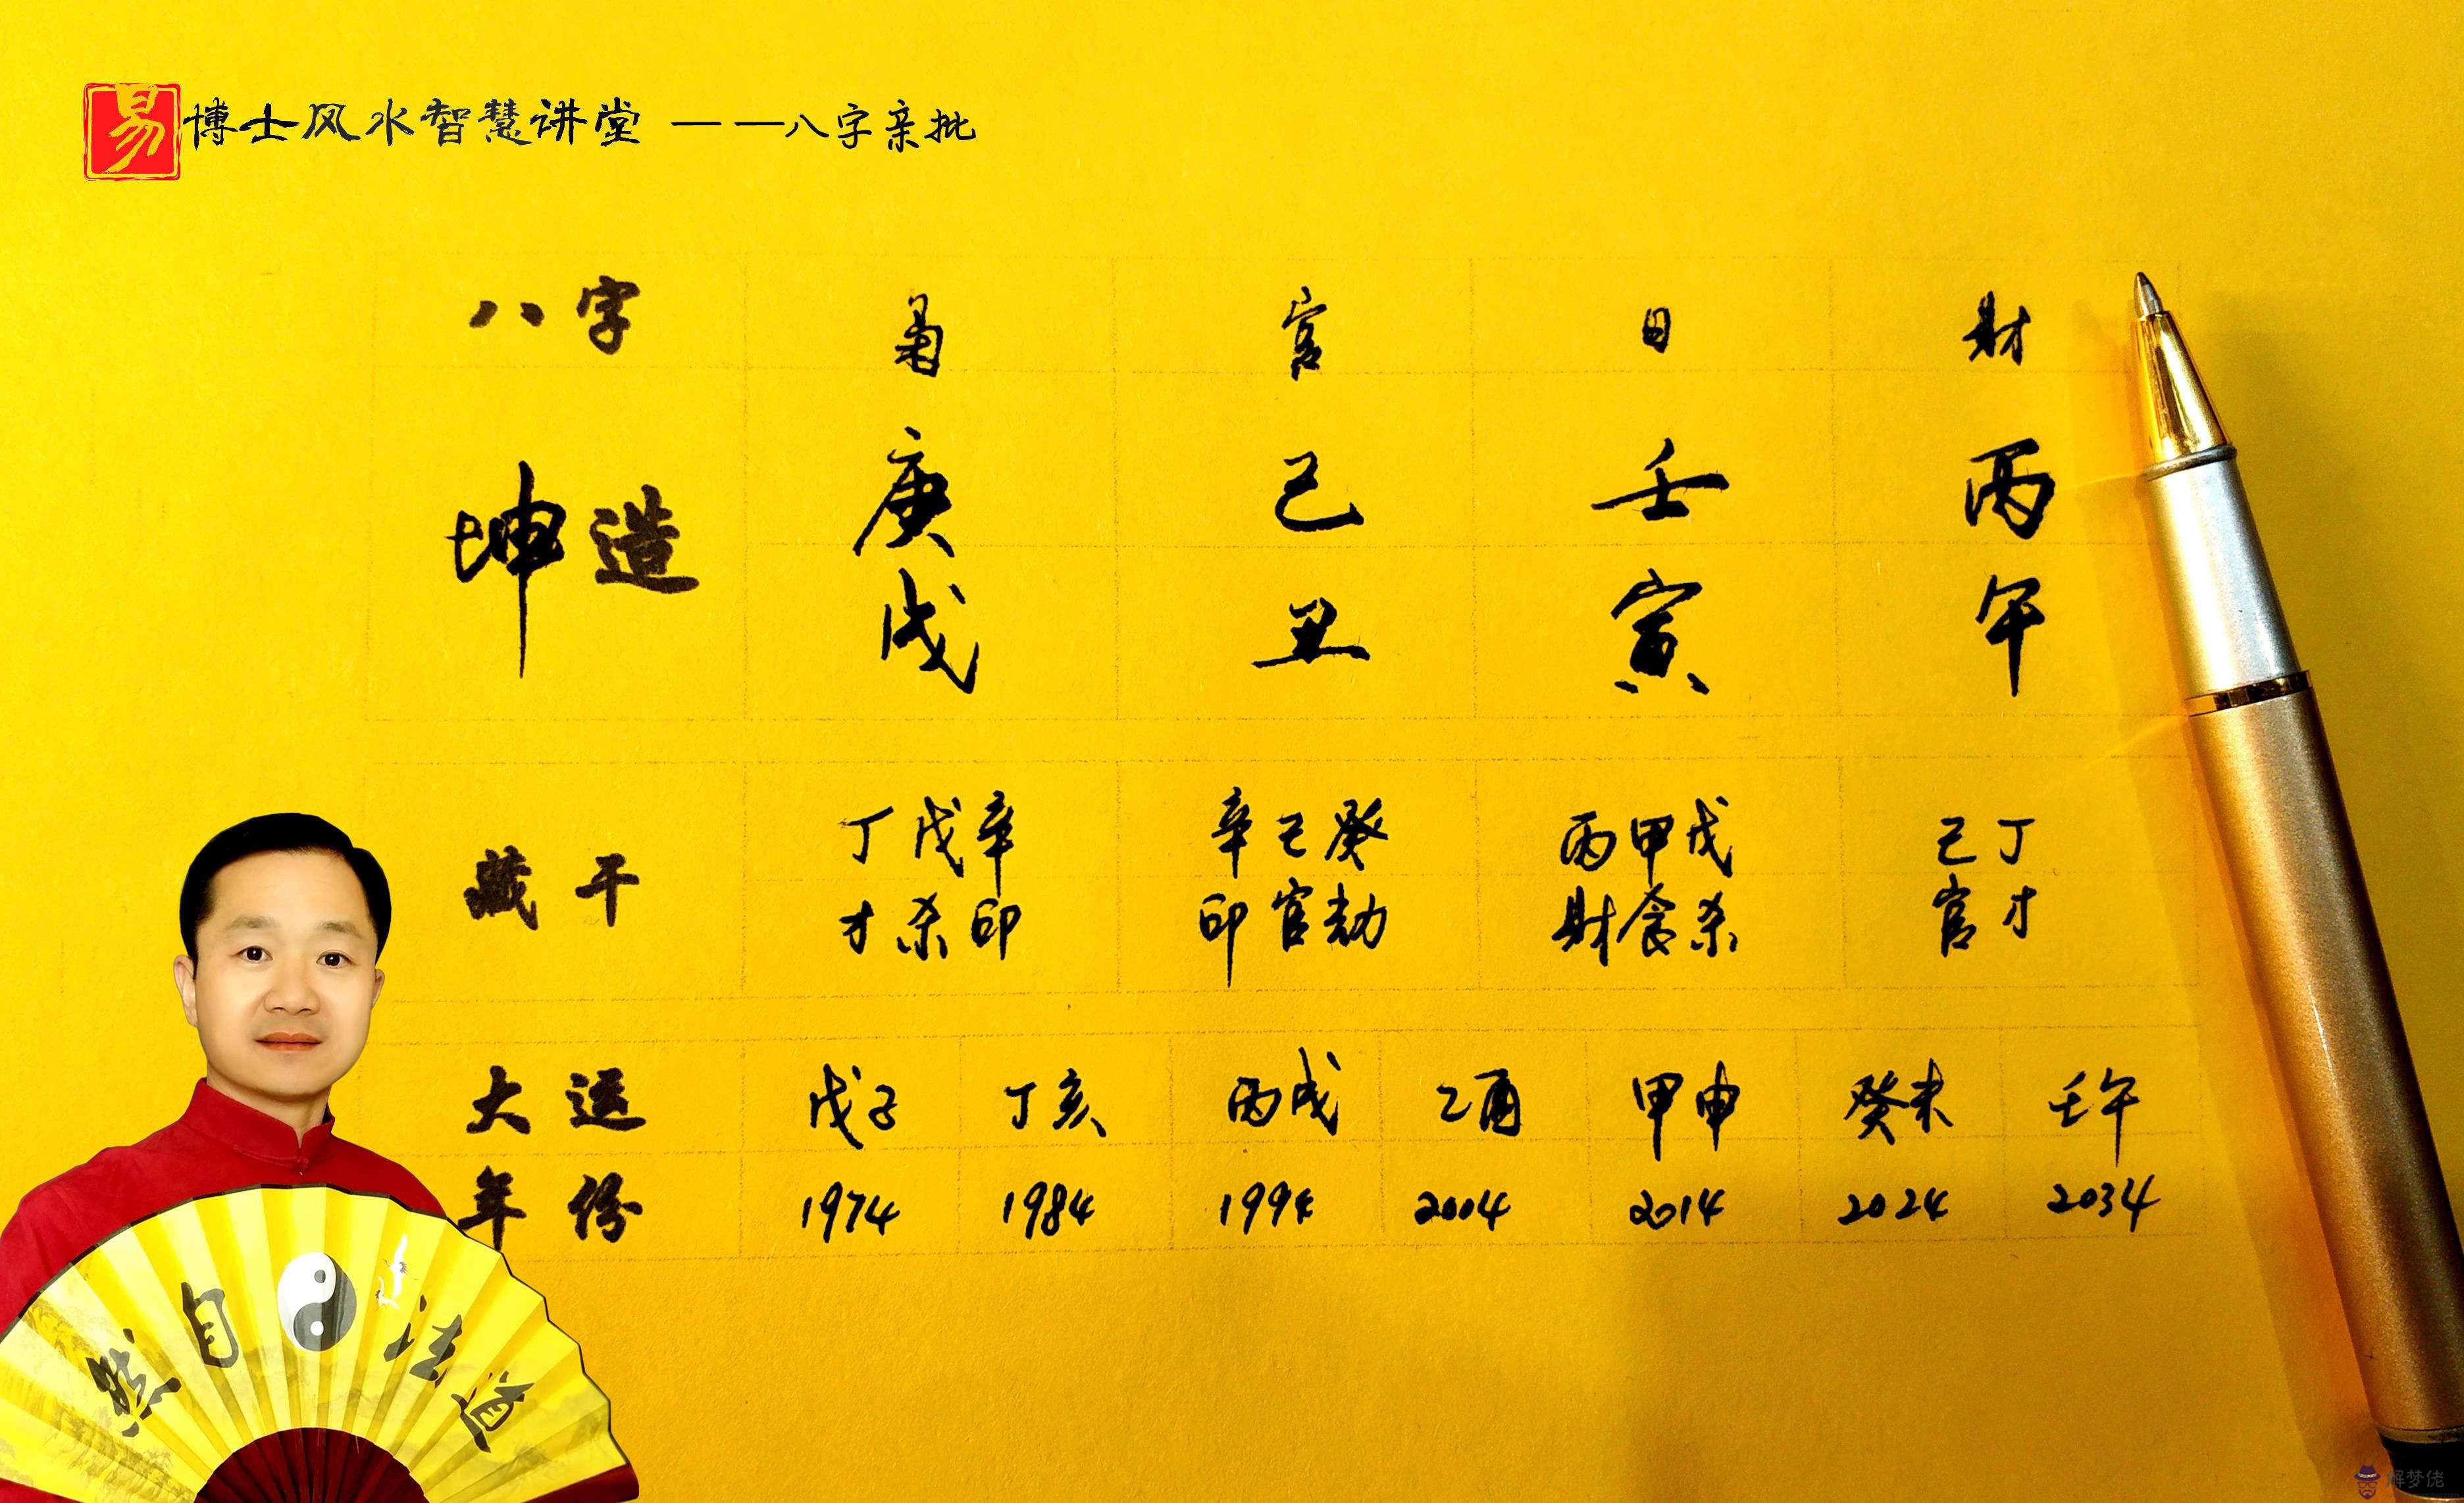 易博士风水智慧讲堂 ——八字亲批
八字 枭 官 日 财
坤造 庚 己 壬 丙
戌 丑 寅 午
藏干 丁戊辛 辛己癸 丙甲戊 己丁
才杀印 印官劫 财食杀 官才
大运 戊子 丁亥 丙戌 乙酉 甲申 癸未 壬午
年份 1974 1984 1994 2004 2014 2024 2034
道法自然
解梦佬